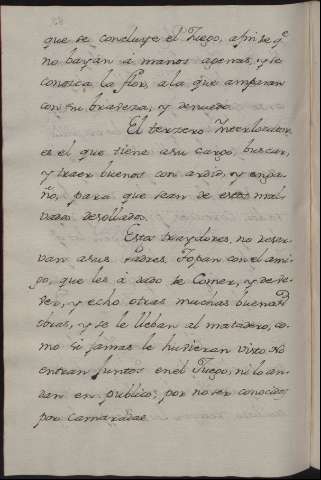 que se concluye el Juego, afin de q^e
no bayan a manos agenas, y se
conosca la flor, a la que amparan
con su braveza, y denuedo.
El terzero Interlocutor
es el que tiene a su cargo, buscar,
y traer buenos con ardid, y enga-
ño, para que sean de estos mal-
vados desollados.
Estos traydores, no reser-
van a sus Padres. Topan con el ami-
go, que les á dado de Comer, y de be-
ver, y echo otras muchas buenas
obras, y se le lleban al matadero, co-
mo si jamas le huvieran visto. No
entran Juntos en el Juego, ni lo an-
dan en publico, por no ser conocidos
por camaradas